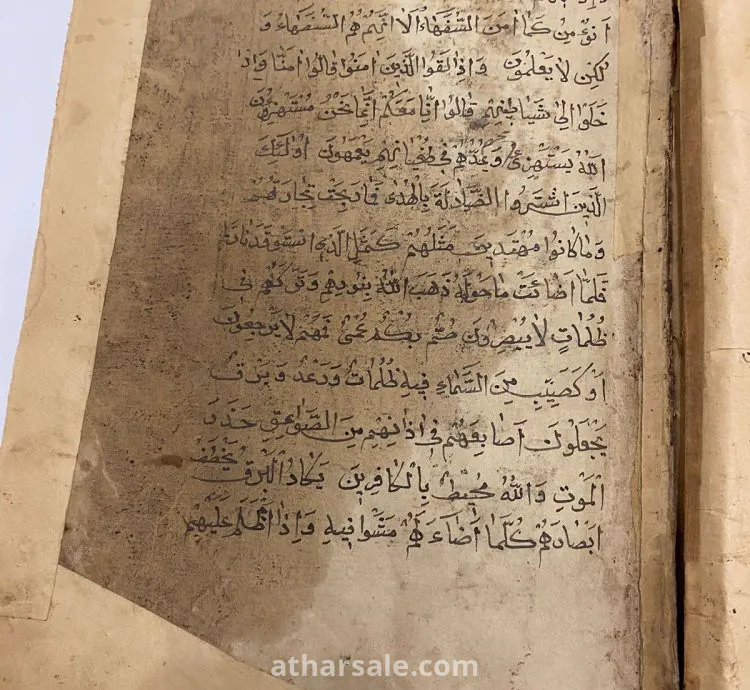 أنؤمن كما آمن السفهاء ألا انهم هم السفهاء و
لكن لا يعلمون واذا لقوا الذين امنوا قالوا امنا واذا
خلوا الى شياطينهم قالوا انا معكم انما نحن مستهزؤن
الله يستهزئ ويمدهم في طغيانهم يعمهون اولئك
الذين اشتروا الضلالة بالهدى فما ربحت تجارتهم
وما كانوا مهتدين مثلهم كمثل الذي استوقد نارا
فلما اضائت ما حوله ذهب الله بنورهم وتركهم في
ظلمات لا يبصرون صم بكم عمى فهم لا يرجعون
او كصيب من السماء فيه ظلمات ورعد وبرق
يجعلون اصابعهم في اذانهم من الصواعق حذر
الموت والله محيط بالكافرين يكاد البرق يخطف
ابصارهم كلما أضاء لهم مشوا فيه واذا أظلم عليهم
atharsale.com